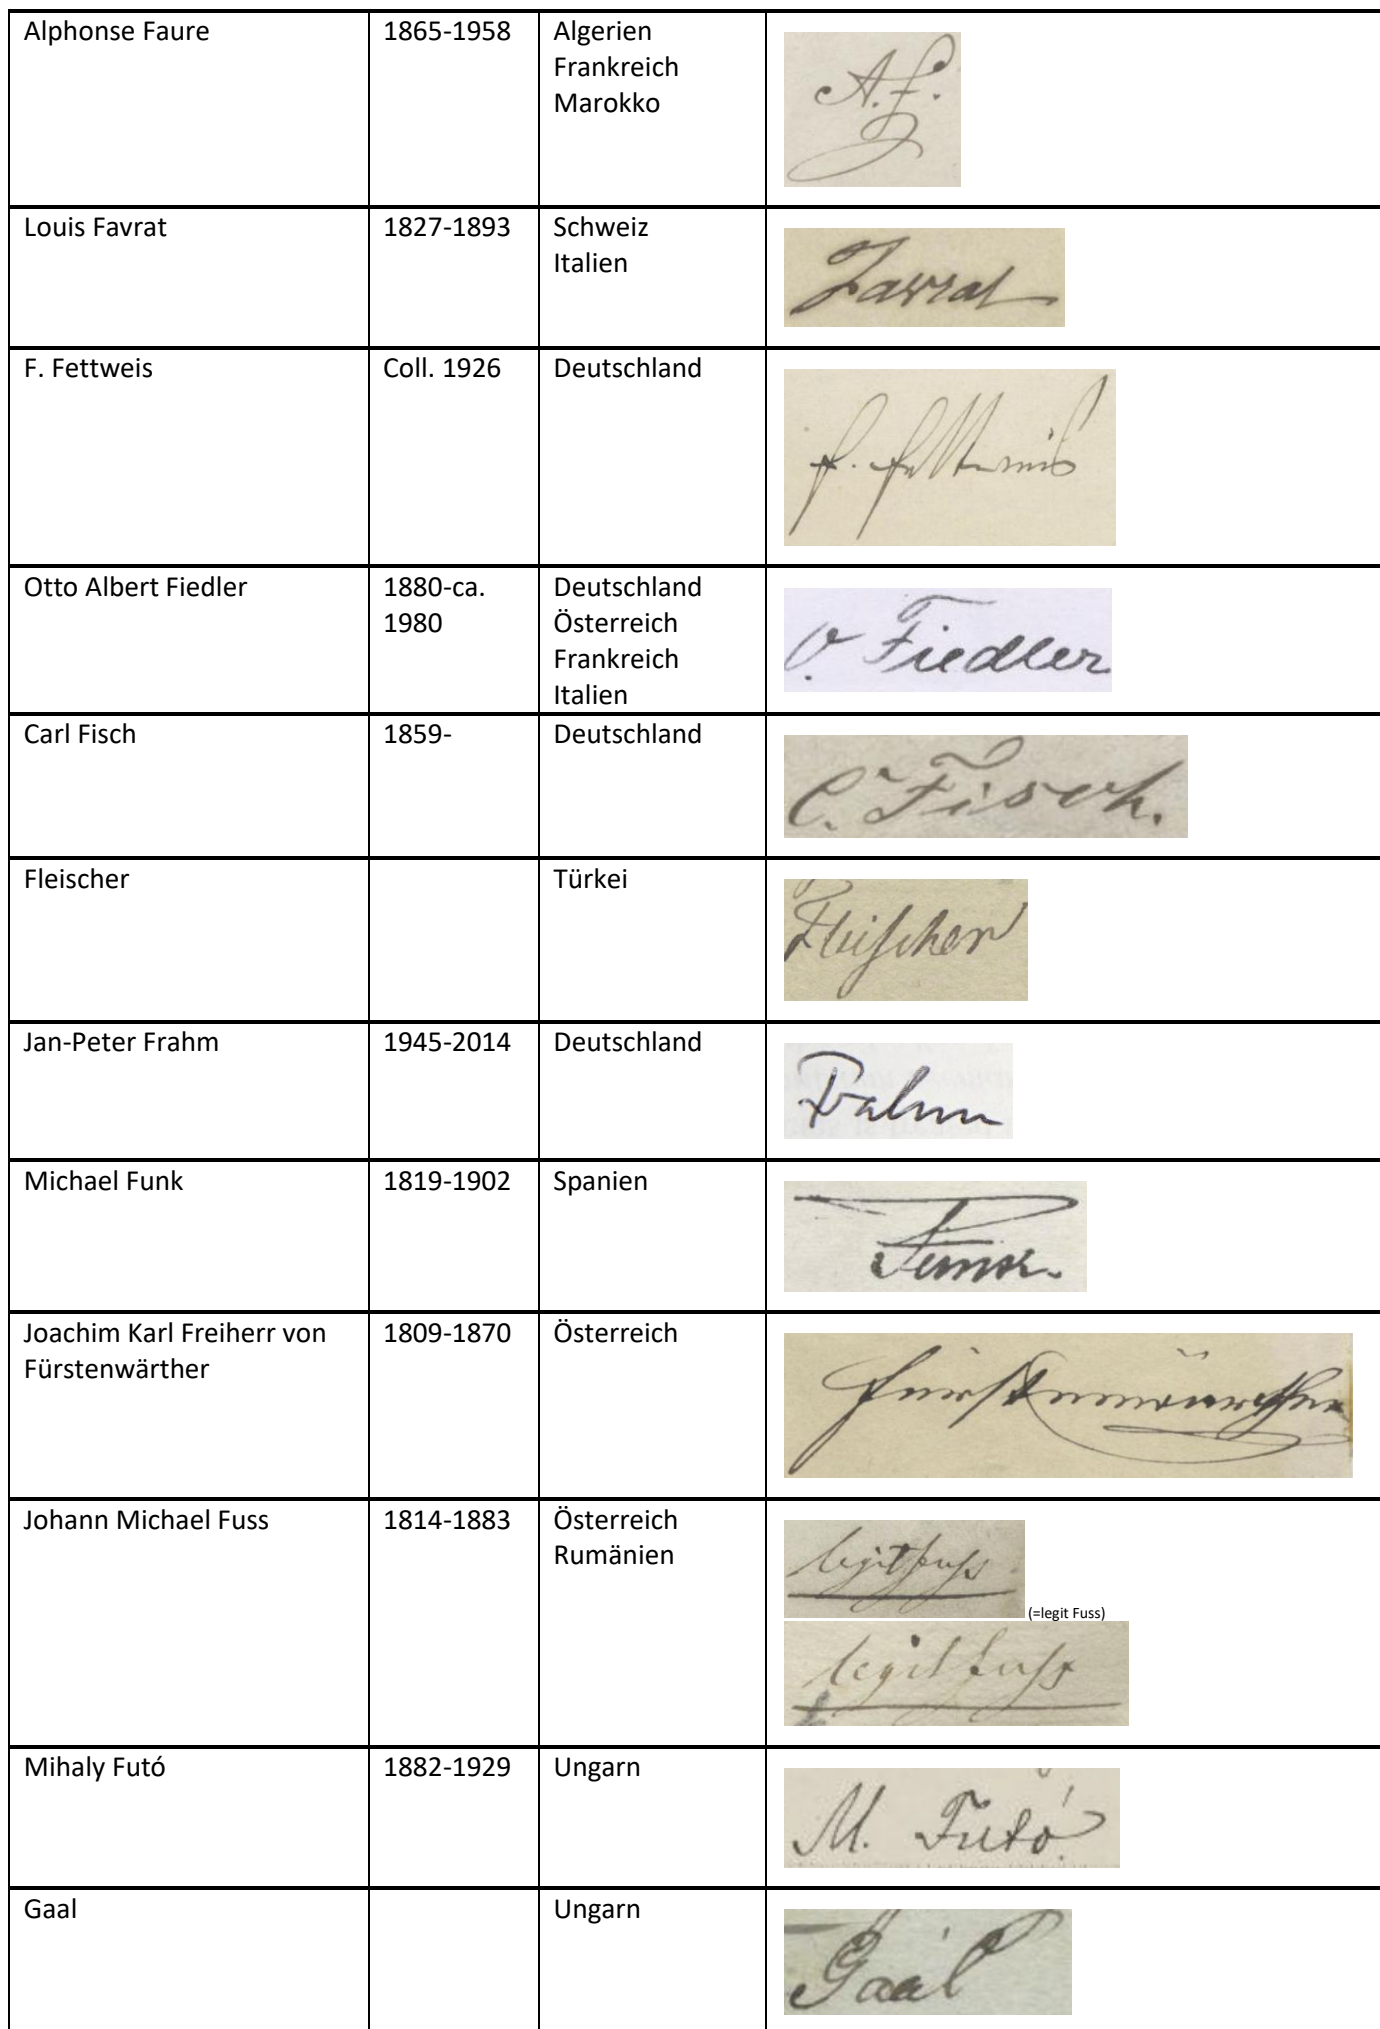 Alphonse Faure 1865-1958 Algerien
Frankreich
Marokko
A. F.
Louis Favrat 1827-1893 Schweiz
Italien
Favrat
F. Fettweis Coll. 1926 Deutschland
F. Fettweis
Otto Albert Fiedler 1880-ca. Deutschland
1980 Österreich
Frankreich
Italien
O. Fiedler
Carl Fisch 1859- Deutschland
C. Fisch.
Fleischer Türkei
Fleischer
Jan-Peter Frahm 1945-2014 Deutschland
Frahm
Michael Funk 1819-1902 Spanien
Funk.
Joachim Karl Freiherr von 1809-1870 Österreich
Fürstenwärther
Fürstenwärther
Johann Michael Fuss 1814-1883 Österreich
Rumänien
legit Fuss
(=legit Fuss)
legit Fuss
Mihaly Futó 1882-1929 Ungarn
M. Futó
Gaal Ungarn
Gaál